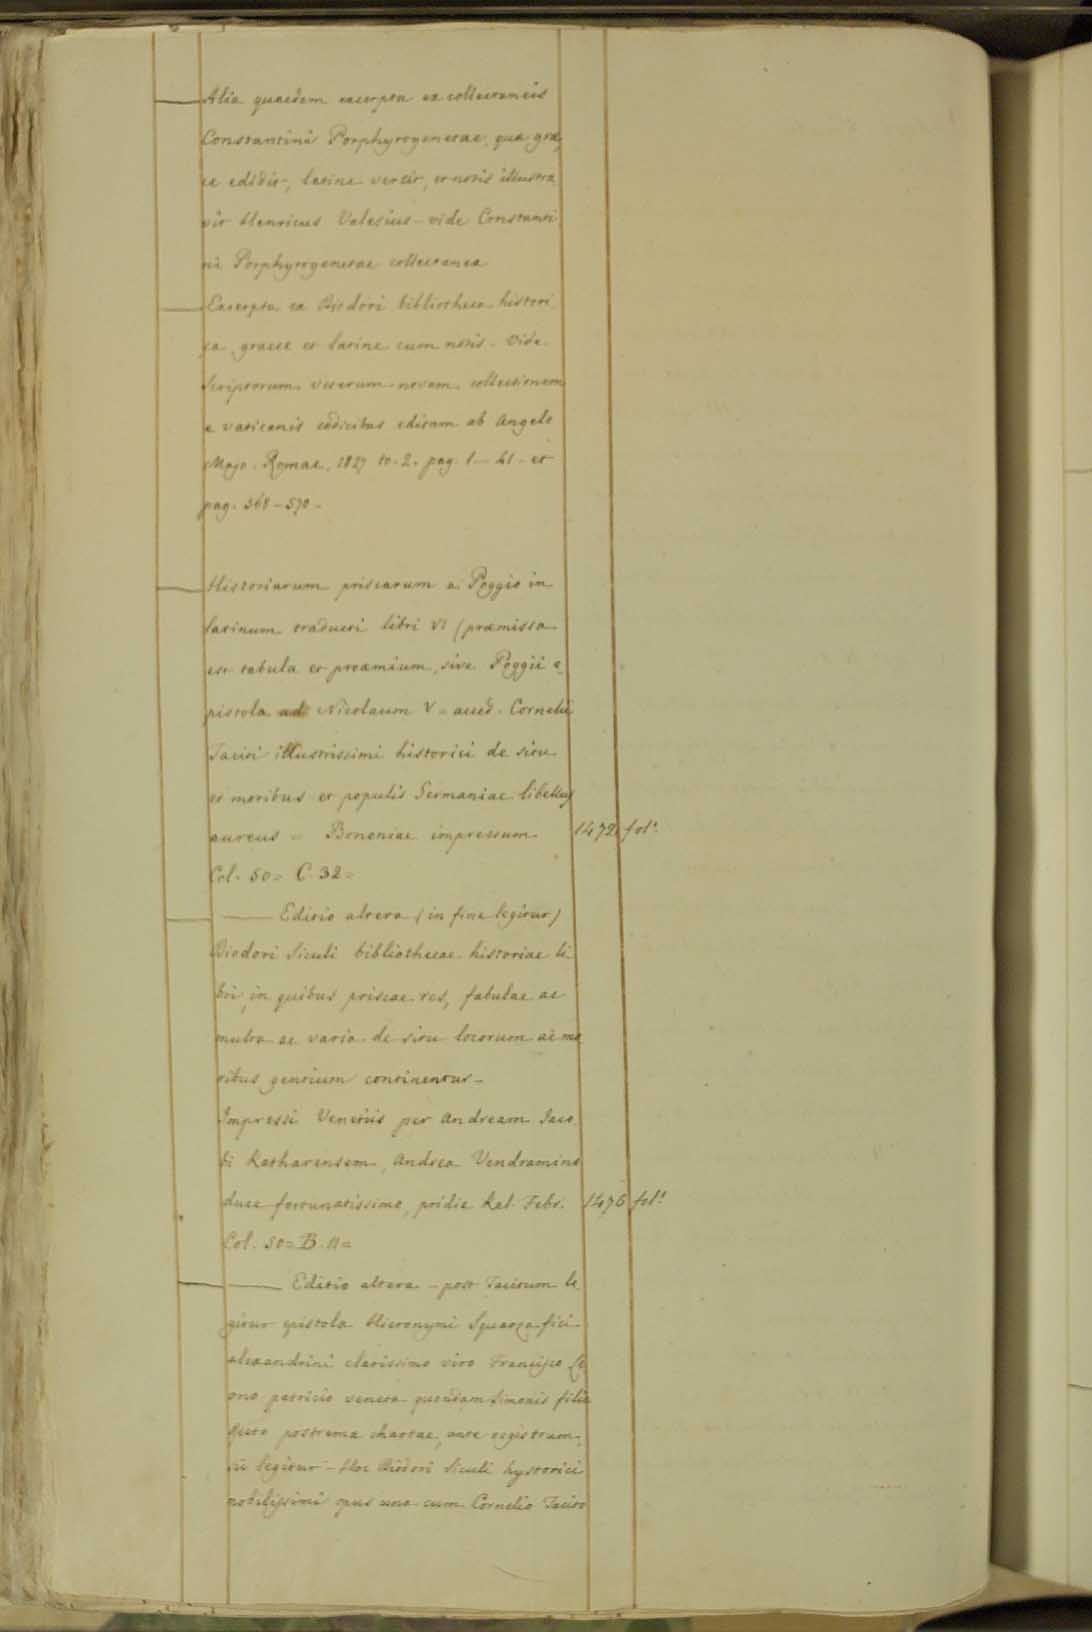 Alia quaedam excerpta ex collectaneis
Constantini Porphyrogenetae, quae grae
ce edidit, latine vertit, et notis illustra
vit Henricus Valesius - vide Constanti
ni Porphyrogenetae collectanea
Excerpta ex Diodori bibliotheca histori
ca graece et latine cum notis - Vide
Scriptorum veterum novam collectionem
e vaticanis codicibus editam ab Angelo
Majo. Romae, 1827 to. 2. pag. 1 - 41 - et
pag. 568 - 570 -
Historiarum priscarum a Poggio in
latinum traducti libri VI (praemissa
est tabula et proemium, sive Poggii e
pistola ad Nicolaum V = acced. Cornelii
Taciti illustrissimi historici de situ
et moribus et populis Germaniae libellus
aureus = Bononiae impressum 1472 fol.
Col. 50 = C. 32 =
Editio altera (in fine legitur)
Diodori Siculi bibliothecae historiae li
bri, in quibus priscae res, fabulae ac
multa ac varia de situ locorum ac mo
ribus gentium continentur -
Impressi Venetiis per Andream Jaco
bi Katharensem, Andrea Vendramino
duce fortunatissimo, pridie kal. Febr. 1476 fol.
Col. 50 = B. 11 =
Editio altera - post Tacitum le
gitur epistola Hieronymi Squarzafici
alexandrini clarissimo viro Francisco
patricio veneto quondam Simonis filio
postrema chartae, ante registrum,
sic legitur - Hoc Diodori Siculi hystorici
nobilissimi opus una cum Cornelio Tacito